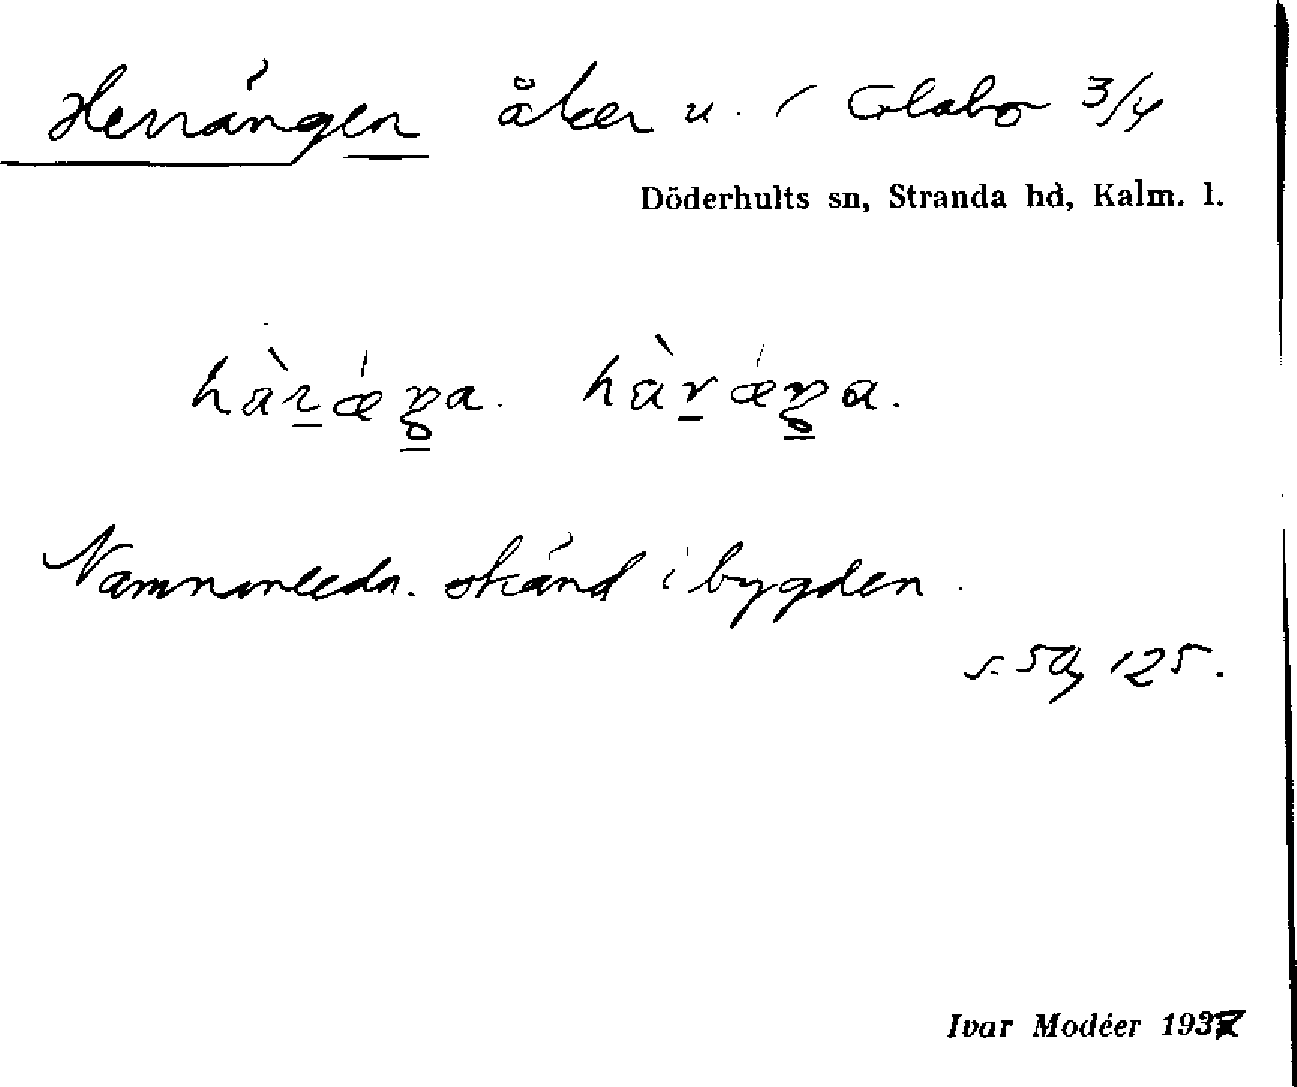 Herrängen åker u. 1 Glabo 3/4
Döderhults sn, Stranda hd, Kalm. l.
Namnanledn. okänd i bygden.
s. 59, 125.
Ivar Modéer 1937